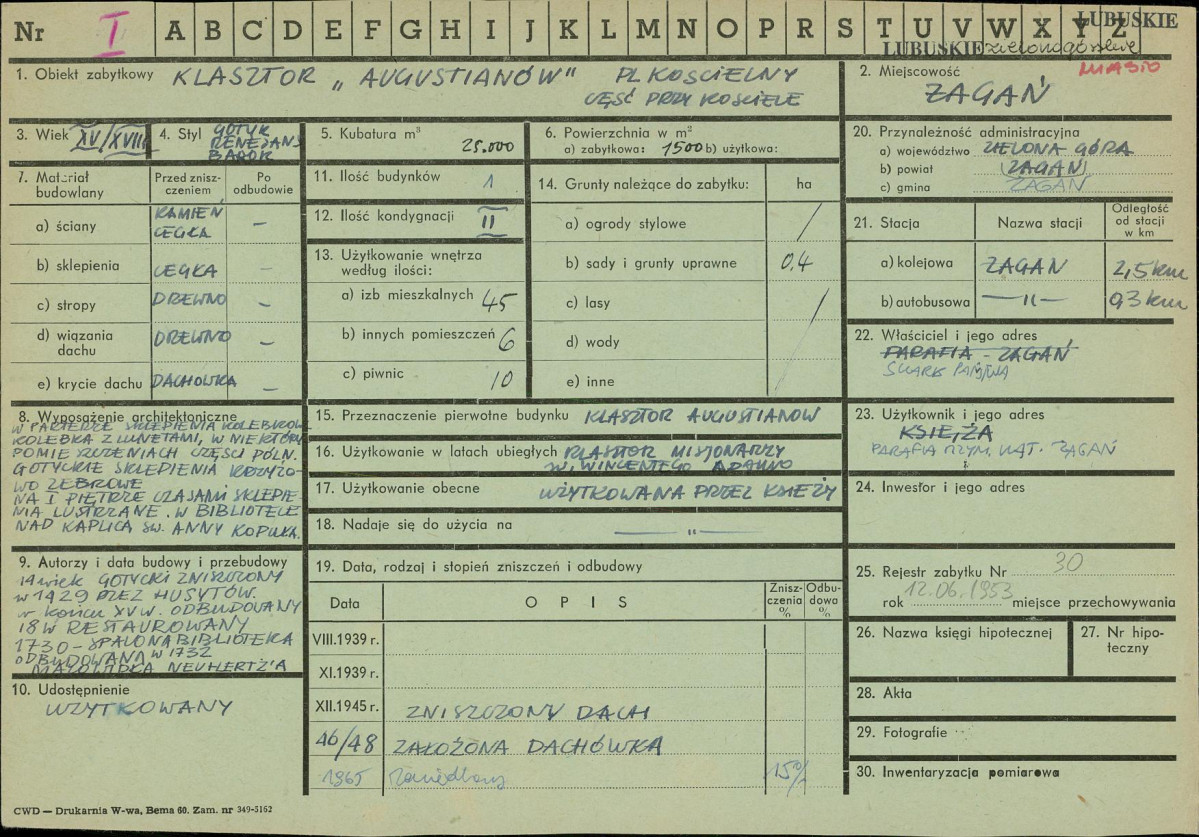 Nr I A B C D E F G H I J K L M N O P R S T U V W X Y Z LUBUSKIE
LUBUSKIE zielonogórskie
1. Obiekt zabytkowy KLASZTOR „AUGUSTIANÓW" PL KOSCIELNY
CZĘŚĆ PRZY KOSCIELE
2. Miejscowość MIASTO
ŻAGAŃ
3. Wiek XV/XVIII
4. Styl GOTYK
RENESANS
BAROK
5. Kubatura m³
25.000
6. Powierzchnia w m²
a) zabytkowa: 1500 b) użytkowa:
20. Przynależność administracyjna
a) województwo ZIELONA GÓRA
b) powiat (ŻAGAŃ)
c) gmina ŻAGAŃ
7. Materiał budowlany
Przed zniszczeniem
Po odbudowie
a) ściany KAMIEŃ CEGŁA —
b) sklepienia CEGŁA —
c) stropy DREWNO —
d) wiązania dachu DREWNO —
e) krycie dachu DACHOWKA —
11. Ilość budynków 1
12. Ilość kondygnacji II
13. Użytkowanie wnętrza
według ilości:
a) izb mieszkalnych 45
b) innych pomieszczeń 6
c) piwnic 10
14. Grunty należące do zabytku: ha
a) ogrody stylowe /
b) sady i grunty uprawne 0,4
c) lasy /
d) wody
e) inne
21. Stacja Nazwa stacji Odległość
od stacji
w km
a) kolejowa ŻAGAŃ 2,5 km
b) autobusowa —"— 0,3 km
22. Właściciel i jego adres
PARAFIA - ŻAGAŃ
SKARB PAŃSTWA
8. Wyposażenie architektoniczne
W PARTERZE SKLEPIENIA KOLEBKOWE
KOLEBKA Z LUNETAMI, W NIEKTÓRY
POMIESZCZENIACH CZĘŚCI PÓŁN.
GOTYCKIE SKLEPIENIA KRZYŻO-
WO ŻEBROWE
NA I PIĘTRZE CZASAMI SKLEPIE-
NIA LUSTRZANE. W BIBLIOTECE
NAD KAPLICĄ ŚW. ANNY KOPUŁA.
15. Przeznaczenie pierwotne budynku KLASZTOR AUGUSTIANOW
16. Użytkowanie w latach ubiegłych KLASZTOR MISJONARZY
ŚW. WINCENTEGO
17. Użytkowanie obecne UŻYTKOWANA PRZEZ KSIEŻY
18. Nadaje się do użycia na —"—
23. Użytkownik i jego adres
KSIĘŻA
PARAFIA RZYM. KAT. ŻAGAŃ
24. Inwestor i jego adres
9. Autorzy i data budowy i przebudowy
14 wiek GOTYCKI ZNISZCZONY
w 1429 PRZEZ HUSYTÓW.
w końcu XV W. ODBUDOWANY
18 W RESTAUROWANY
1730 - SPALONA BIBLIOTEKA
ODBUDOWANA W 1732
MALOWIDŁA NEUHERTZ'A
10. Udostępnienie
UŻYTKOWANY
19. Data, rodzaj i stopień zniszczeń i odbudowy
Data OPIS Zniszczenia % Odbudowa %
VIII.1939 r.
XI.1939 r.
XII.1945 r. ZNISZCZONY DACH
46/48 ZAŁOŻONA DACHÓWKA
1965 zaniedbany 15%
25. Rejestr zabytku Nr 30
rok 12.06.1953 miejsce przechowywania
26. Nazwa księgi hipotecznej
27. Nr hipoteczny
28. Akta
29. Fotografie
30. Inwentaryzacja pomiarowa
CWD — Drukarnia W-wa, Bema 60. Zam. nr 349-5162